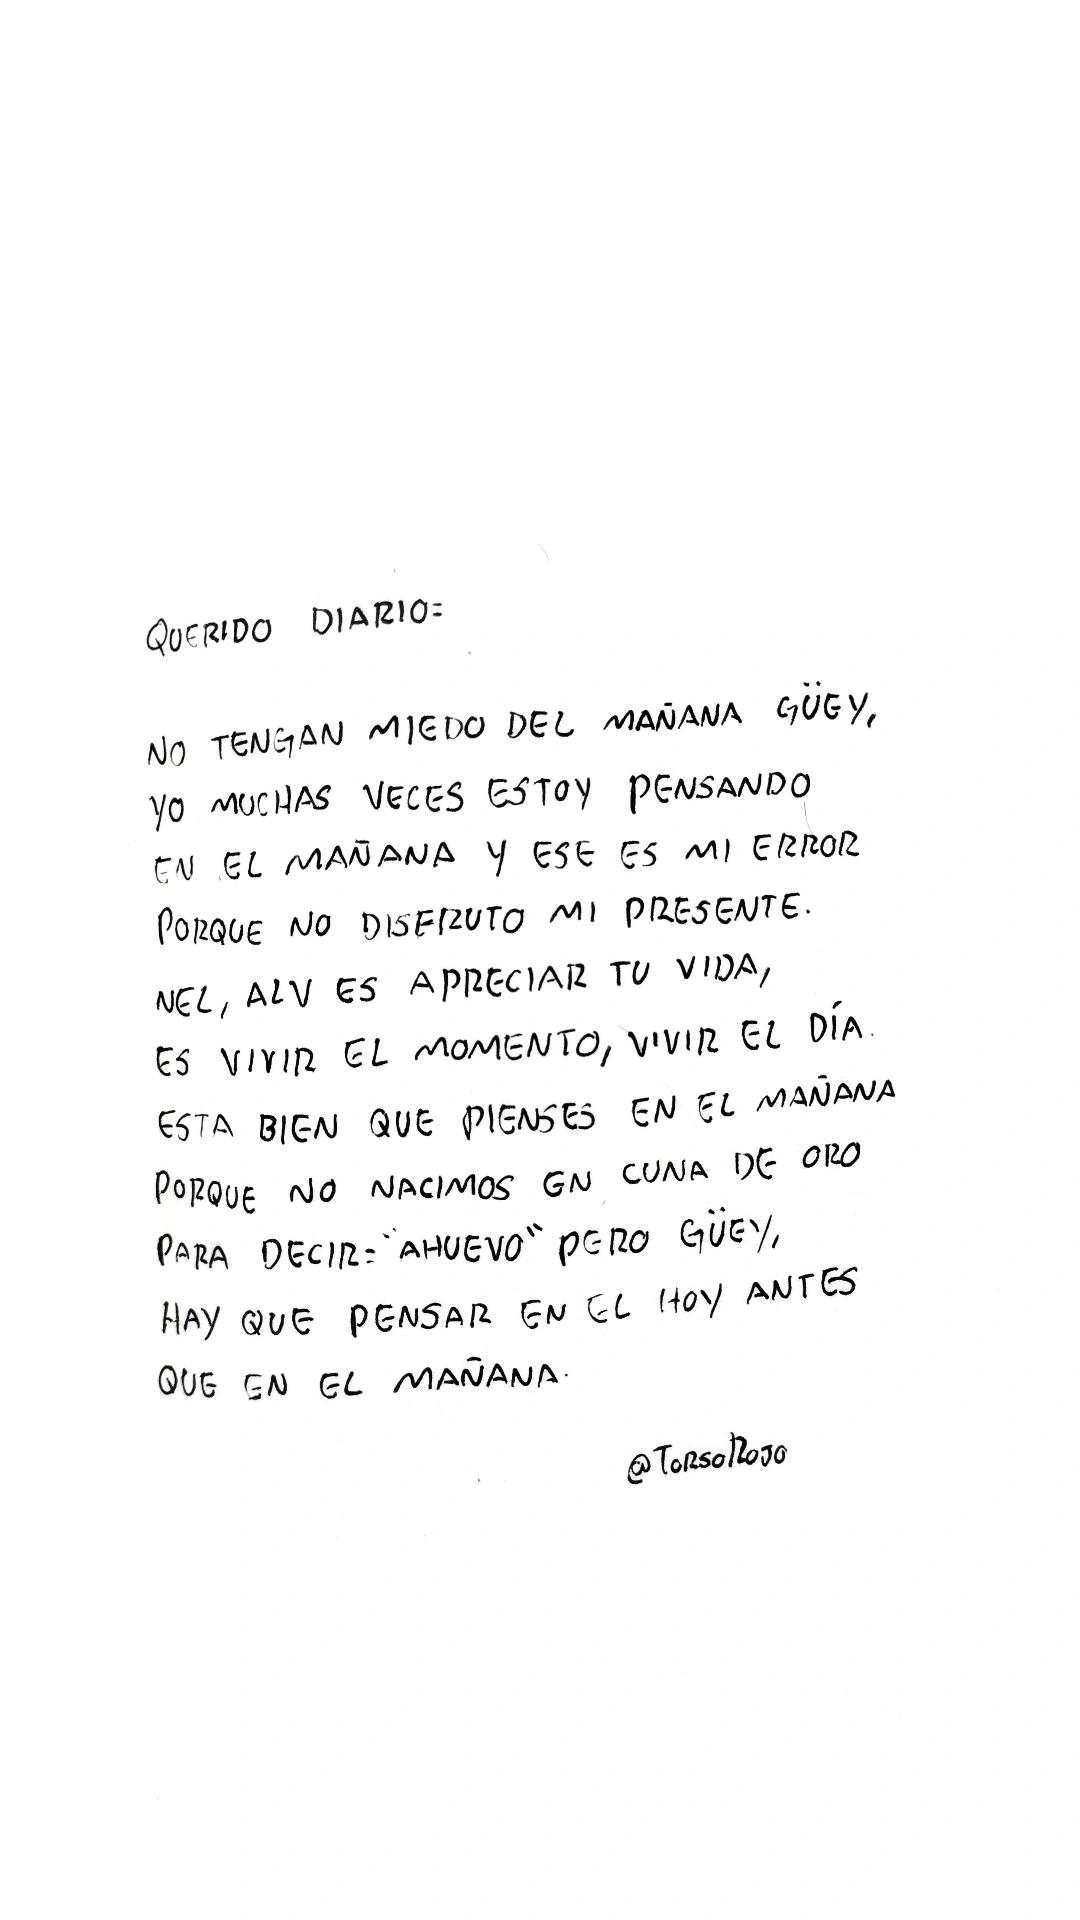 QUERIDO DIARIO=
NO TENGAN MIEDO DEL MAÑANA GÜEY,
YO MUCHAS VECES ESTOY PENSANDO
EN EL MAÑANA Y ESE ES MI ERROR
PORQUE NO DISFRUTO MI PRESENTE.
NEL, ALV ES APRECIAR TU VIDA,
ES VIVIR EL MOMENTO, VIVIR EL DÍA.
ESTA BIEN QUE PIENSES EN EL MAÑANA
PORQUE NO NACIMOS EN CUNA DE ORO
PARA DECIR= "AHUEVO" PERO GÜEY,
HAY QUE PENSAR EN EL HOY ANTES
QUE EN EL MAÑANA.
@TORSOROJO